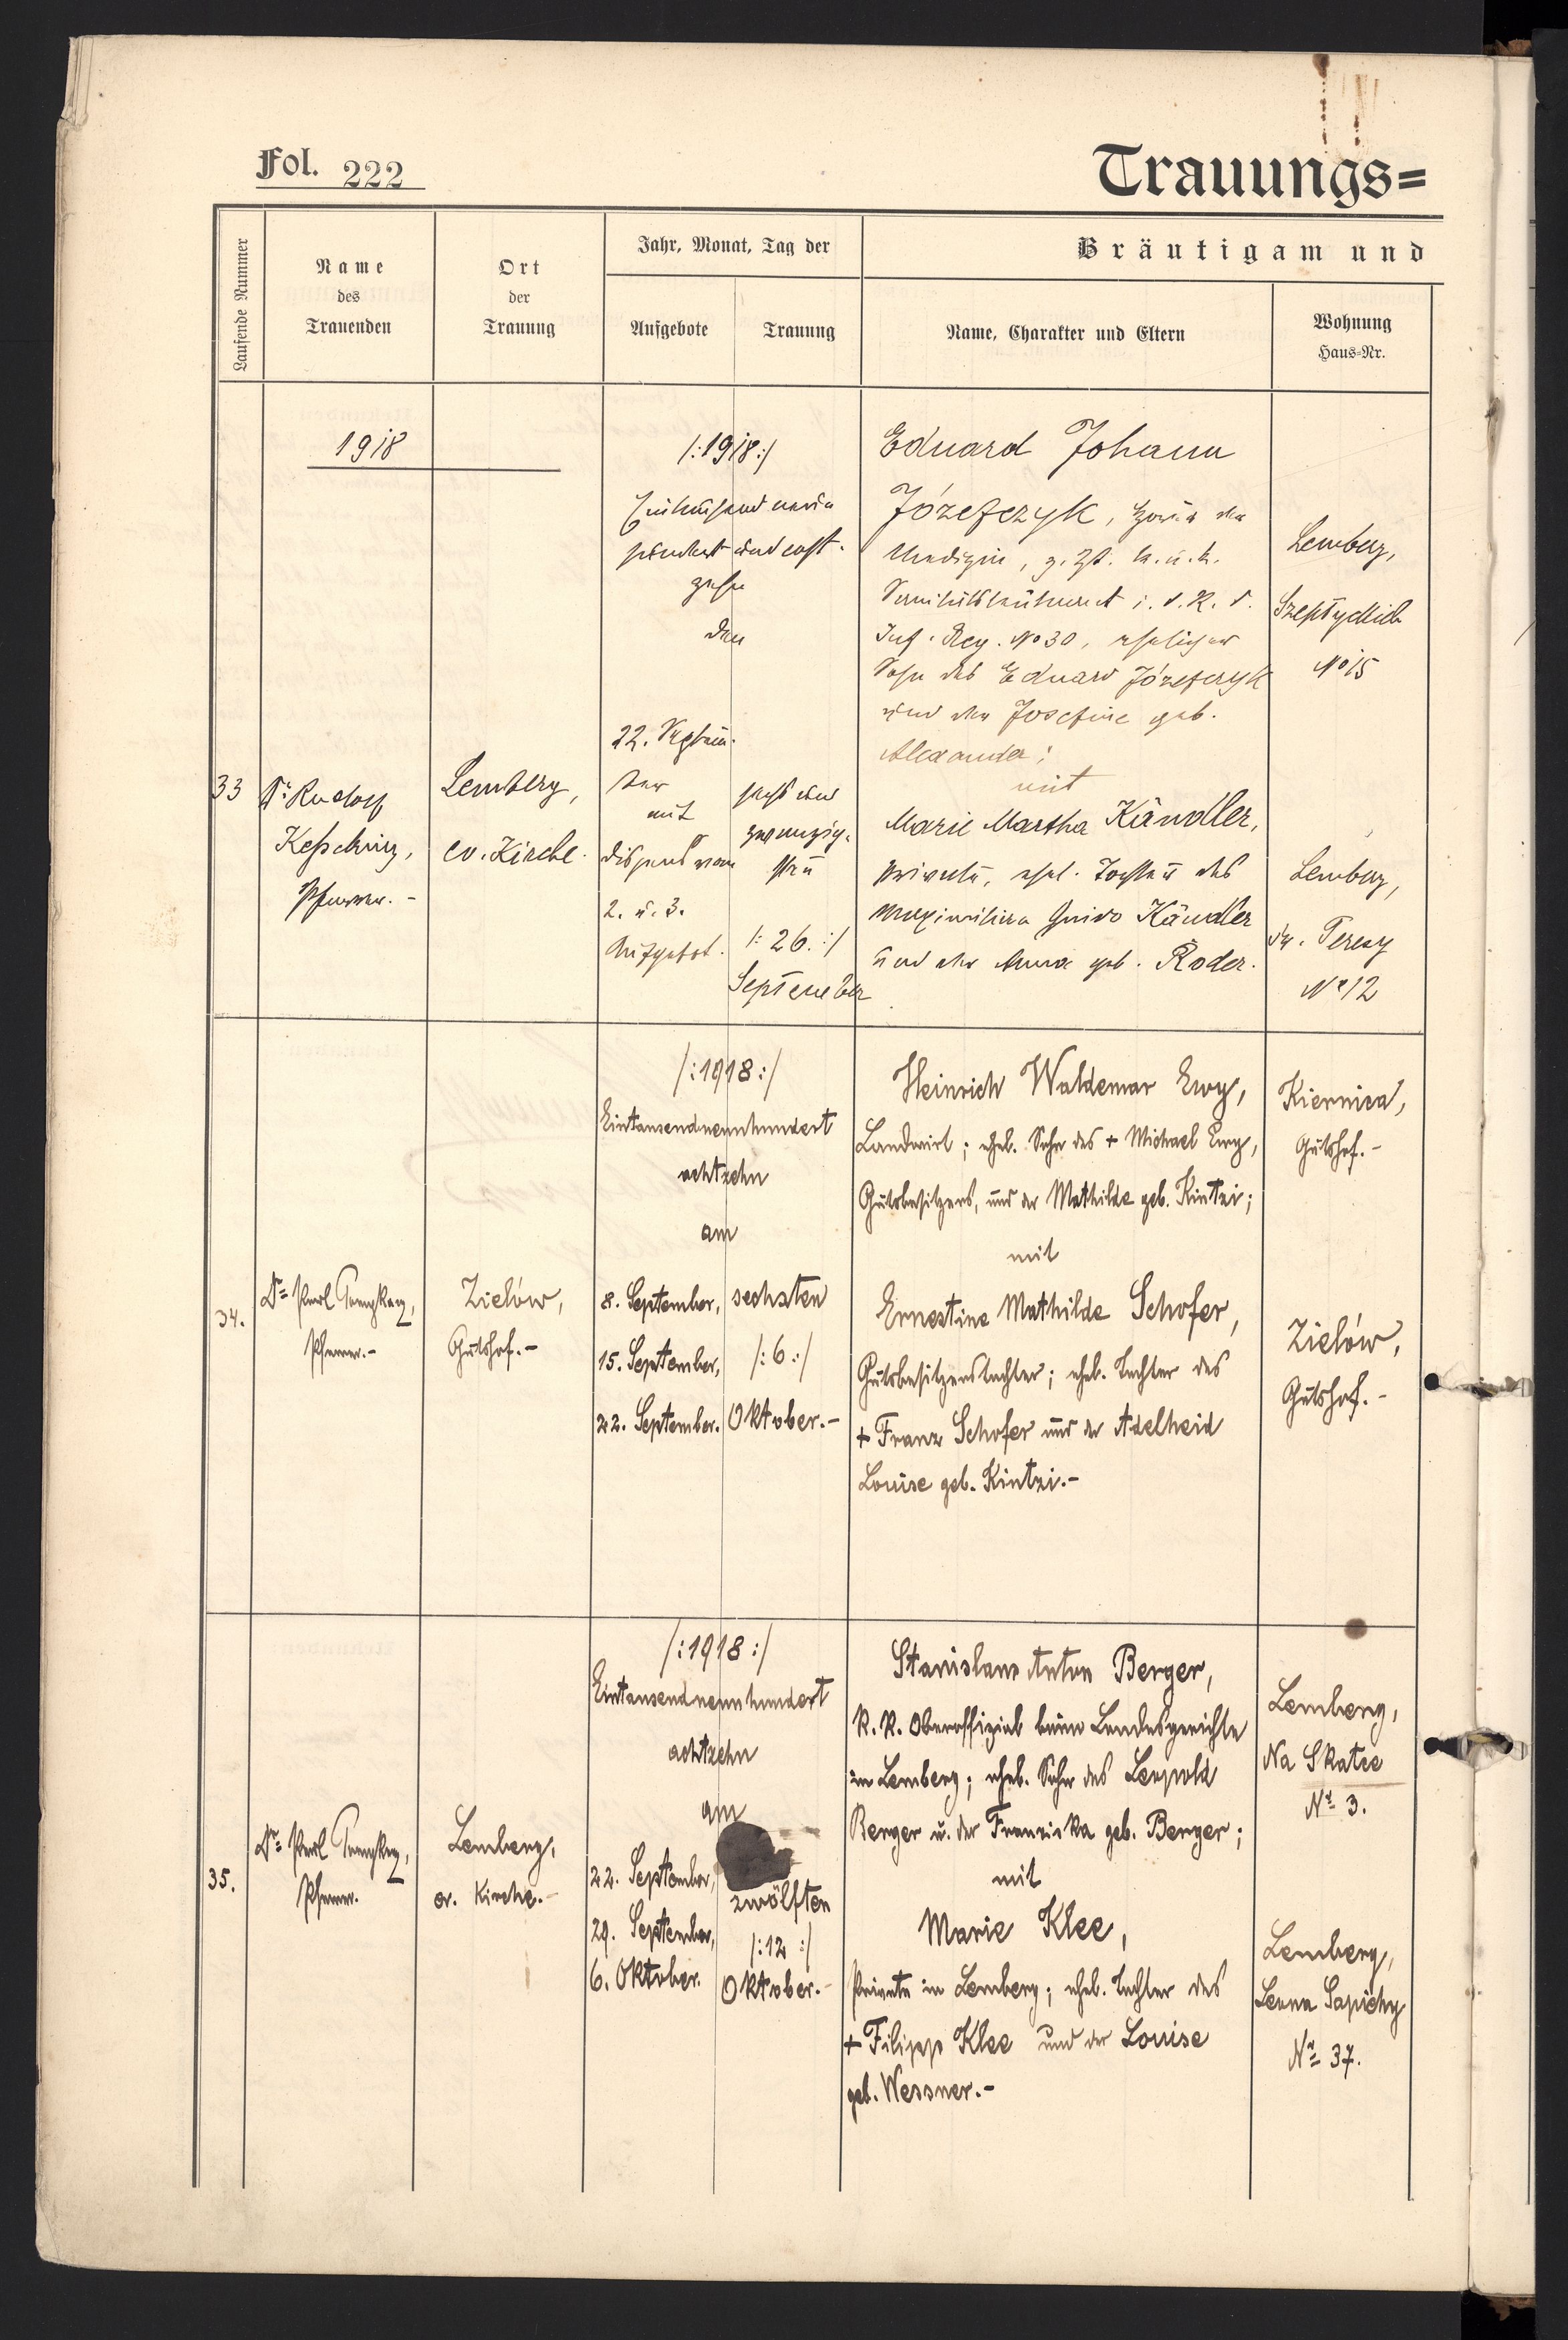 Fol. 222
Trauungs=
Laufende Nummer
Name
des
Trauenden
Ort
der
Trauung
Jahr, Monat, Tag der
Aufgebote
Trauung
Bräutigam und
Name, Charakter und Eltern
Wohnung
Haus-Nr.
1918
33
Dr Rudolf
Kesselring,
Pfarrer. -
Lemberg,
ev. Kirche.
/:1918:/
Eintausend neun
hundert und acht-
zehn
den
22. Septem-
ber
mit
Dispens vom
2. u. 3.
Aufgebot.
sechs und
zwanzig-
sten
/: 26. :/
September
Eduard Johann
Józefczyk, der
Medizin, z. Zt. k. u. k.
i. d. R. d.
Inf. Reg. No 30, ehelicher
Sohn des Eduard Józefczyk
und der Josefine geb.
Alexander;
mit
Marie Martha Kändler,
Private, ehel. Tochter des
Maximilian Guido Kändler
und der Anna geb. Roder.
Lemberg,
Szeptyckich
No 15
Lemberg,
św. Teresy
No 12
34.
Dr Paul
Pfarrer.-
Zielów,
Gutshof.-
/:1918:/
Eintausendneunhundert
achtzehn
am
8. September,
15. September,
22. September.
sechsten
/:6:/
Oktober.-
Heinrich Waldemar Ewy,
Landwirt; ehel. Sohn des + Michael Ewy,
Gutsbesitzers, und der Mathilde geb. Kintzi;
mit
Ernestine Mathilde Schofer,
Gutsbesitzerstochter; ehel. Tochter des
+ Franz Schofer und der Adelheid
Louise geb. Kintzi.-
Kiernica,
Gutshof.-
Zielów,
Gutshof.-
35.
Dr Paul
Pfarrer.
Lemberg,
ev. Kirche.-
/:1918:/
Eintausendneunhundert
achtzehn
am
22. September,
29. September,
6. Oktober.
zwölften
/:12:/
Oktober.-
Stanislaus Anton Berger,
k. k. Oberoffizial beim Landesgerichte
in Lemberg; ehel. Sohn des Leopold
Berger u. der Franziska geb. Berger;
mit
Marie Klee,
Private in Lemberg; ehel. Tochter des
+ Filipp Klee und der Louise
geb. Wessner.-
Lemberg,
Na Skałce
Nr 3.
Lemberg,
Leona Sapiehy
Nr 37.